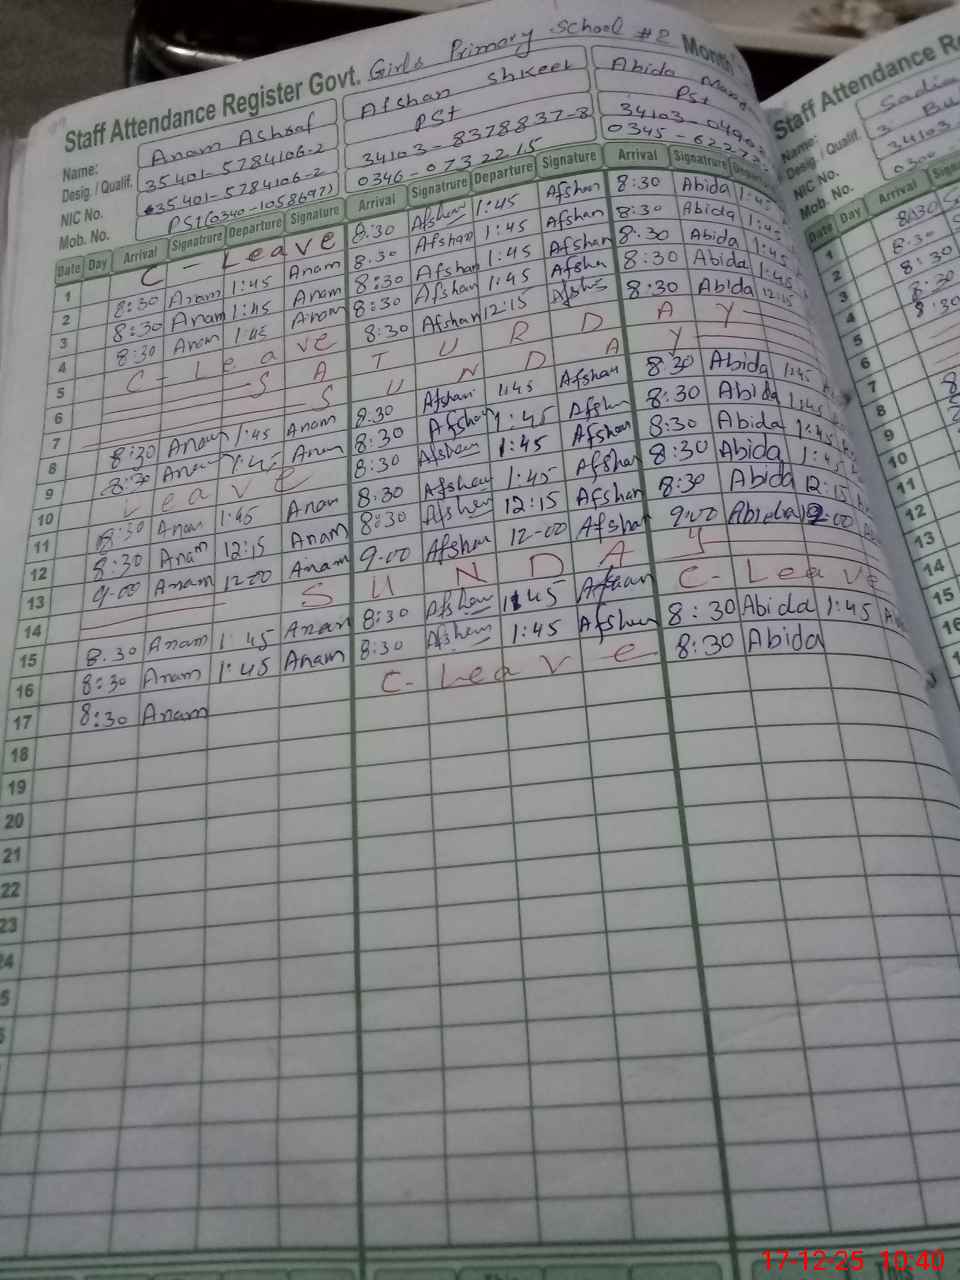 Staff Attendance Register Govt. Girls Primary School #2 Month
Name: Anam Ashraf Afshan Shkeel Abida
Desig. / Qualif. 35401-5784106-2 PSt PSt
NIC No. 35401-5784106-2 34103-8378837-8 34103-
Mob. No. PSt(0340-1058697) 0346-0732215 0345-
Date Day Arrival Signatrure Departure Signature Arrival Signatrure Departure Signature Arrival Signatrure
1 C-Leave 8:30 Afshan 1:45 Afshan 8:30 Abida 1:45
2 8:30 Anam 1:45 Anam 8:30 Afshan 1:45 Afshan 8:30 Abida 1:45
3 8:30 Anam 1:45 Anam 8:30 Afshan 1:45 Afshan 8:30 Abida 1:45
4 8:30 Anam 1:45 Anam 8:30 Afshan 1:45 Afsha 8:30 Abida 1:45
5 C-Leave 8:30 Afshan 12:15 Afshan 8:30 Abida 12:15
6 SATURDAY
7 SUNDAY
8 8:30 Anam 1:45 Anam 8:30 Afshan 1:45 Afshan 8:30 Abida 1:45
9 8:30 Anam 1:45 Anam 8:30 Afshan 1:45 Afshan 8:30 Abida 1:45
10 Leave 8:30 Afshan 1:45 Afshan 8:30 Abida 1:45
11 8:30 Anam 1:45 Anam 8:30 Afshan 1:45 Afshan 8:30 Abida 1:45
12 8:30 Anam 12:15 Anam 8:30 Afshan 12:15 Afshan 8:30 Abida 12:15
13 9-00 Anam 12-00 Anam 9-00 Afshan 12-00 Afshan 9:00 Abida 2:00
14 SUNDAY
15 8:30 Anam 1:45 Anam 8:30 Afshan 1:45 Afshan C-Leave
16 8:30 Anam 1:45 Anam 8:30 Afshan 1:45 Afshan 8:30 Abida 1:45
17 8:30 Anam C-Leave 8:30 Abida
18
19
20
21
22
23
24
Staff Attendance Re
Name: Sadia
Desig. / Qualif.
NIC No. 34103
Mob. No.
Date Day Arrival
1 8:30
2 8:30
3 8:30
4 8:30
5 8:30
6
7
8
9
10
11
12
13
14
15
16
17-12-25 10:40